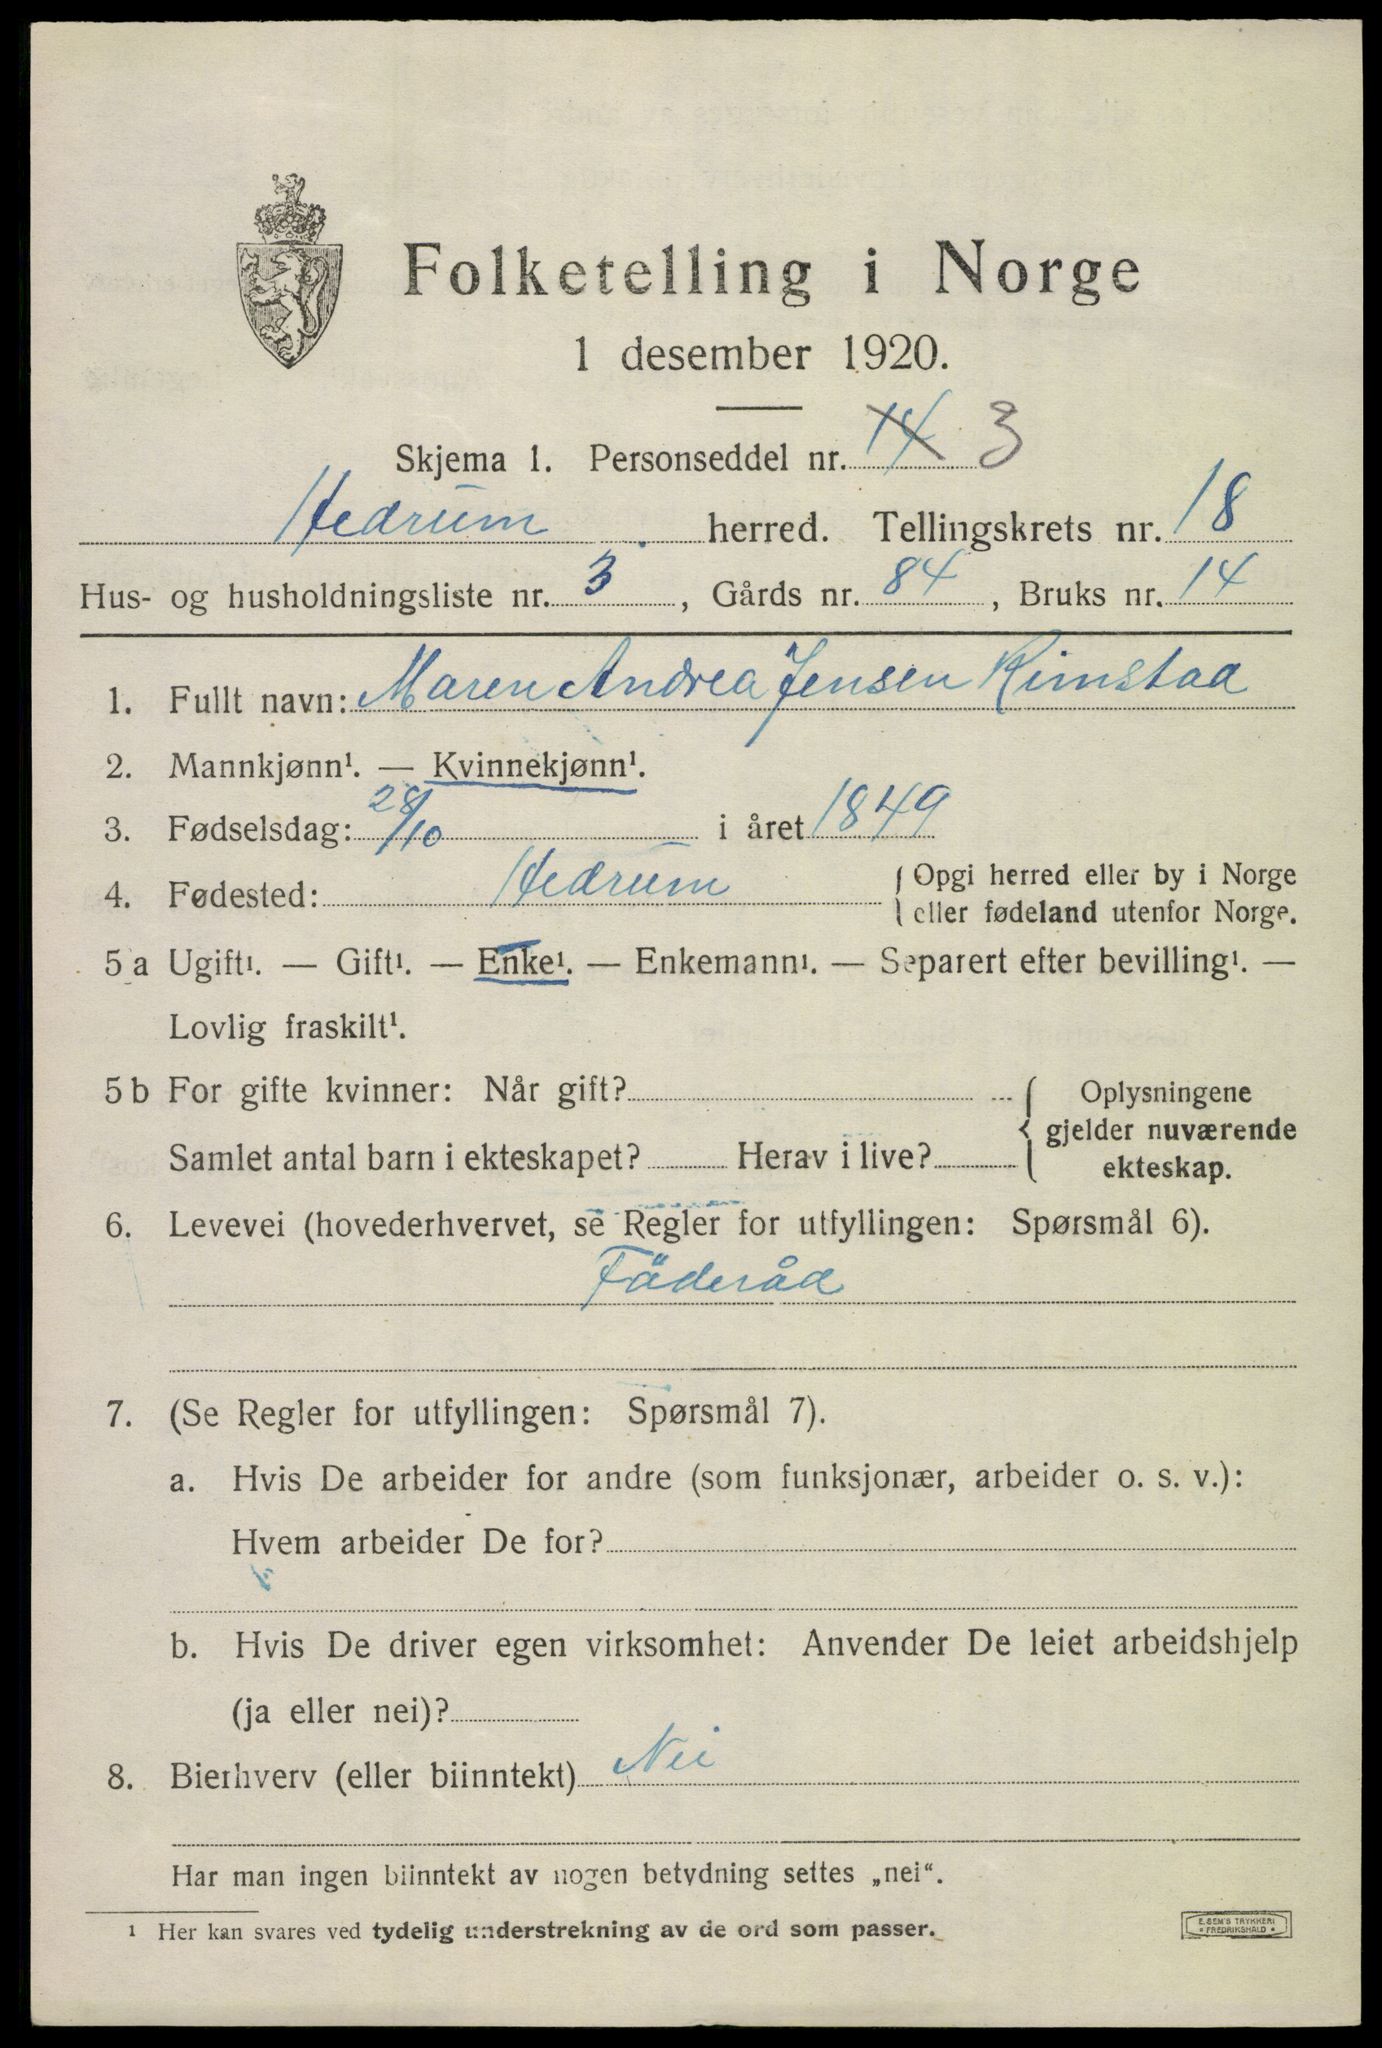 Folketelling i Norge
1 desember 1920.
Skjema 1. Personseddel nr. 14 3
Hedrum herred. Tellingskrets nr. 18
Hus- og husholdningsliste nr. 3, Gårds nr. 84, Bruks nr. 14
1. Fullt navn: Maren Andrea Jensen Rimstad
2. Mannkjønn¹. — Kvinnekjønn¹.
3. Fødselsdag: 28/10 i året 1849
4. Fødested: Hedrum { Opgi herred eller by i Norge
eller fødeland utenfor Norge.
5 a Ugift¹. — Gift¹. — Enke¹. — Enkemann¹. — Separert efter bevilling¹. —
Lovlig fraskilt¹.
5 b For gifte kvinner: Når gift?
Samlet antal barn i ekteskapet? Herav i live?
{ Oplysningene
gjelder nuværende
ekteskap.
6. Levevei (hovederhvervet, se Regler for utfyllingen: Spørsmål 6).
Föderåd
7. (Se Regler for utfyllingen: Spørsmål 7).
a. Hvis De arbeider for andre (som funksjonær, arbeider o. s. v.):
Hvem arbeider De for?
b. Hvis De driver egen virksomhet: Anvender De leiet arbeidshjelp
(ja eller nei)?
8. Bierhverv (eller biinntekt) Nei
Har man ingen biinntekt av nogen betydning settes „nei“.
¹ Her kan svares ved tydelig understrekning av de ord som passer.
E. SEM'S TRYKKERI
• FREDRIKSHALD •